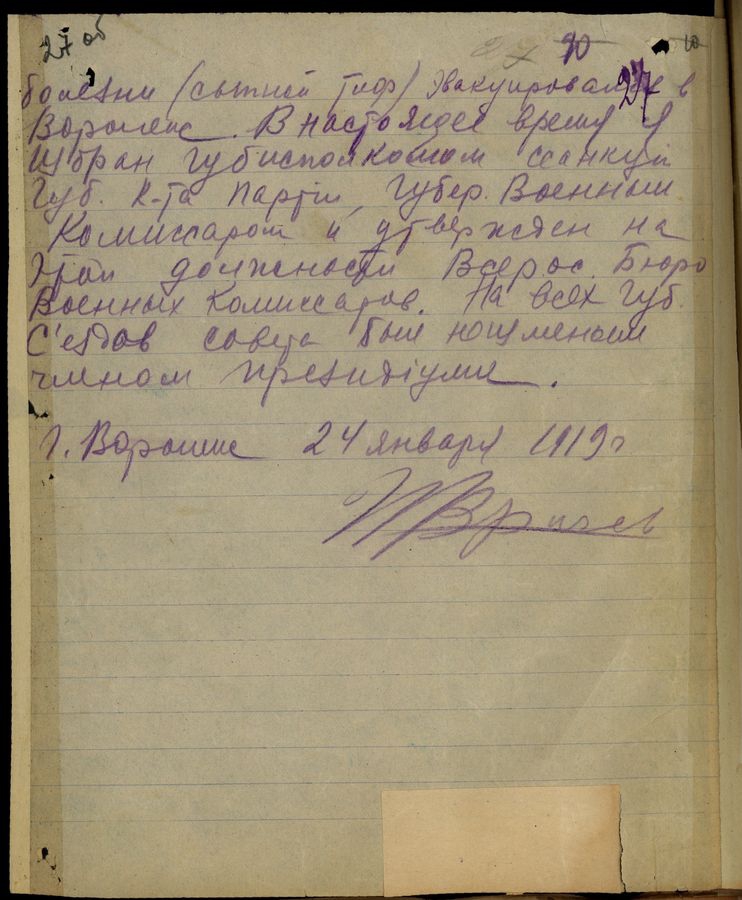 27 об
27 90 10
27
болезни (сыпной тиф) эвакуировался в
Воронеж. В настоящее время я
избран Губисполкомом с санкции
Губ. К-та партiи, Губер. Военным
Комиссаром и утвержден на
этой должности Всерос. Бюро
Военных Комиссаров. На всех Губ.
С'ездах совета был
членом президiума.
г. Воронеж 24 января 1919 г
И Врачев